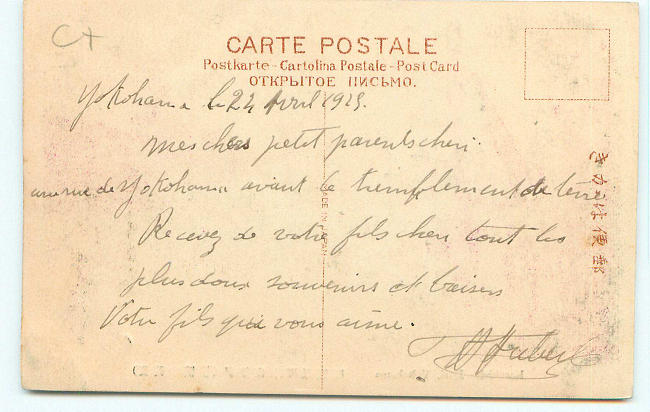 CARTE POSTALE
Postkarte - Cartolina Postale - Post Card
ОТКРЫТОЕ ПИСЬМО.
Yokohama le 24 Avril 1925.
mes chers petit parents cheri.
une vue de Yokohama avant le tremplement de terre
Recevez de votre fils cheri tout les
plus doux souvenirs et baisers
Votre fils qui vous aime.
Hubert
きかは便郵
MADE IN JAPAN
CT